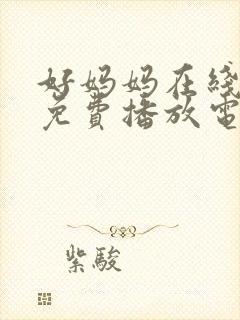 好妈妈在线
免費播放電
紫駿